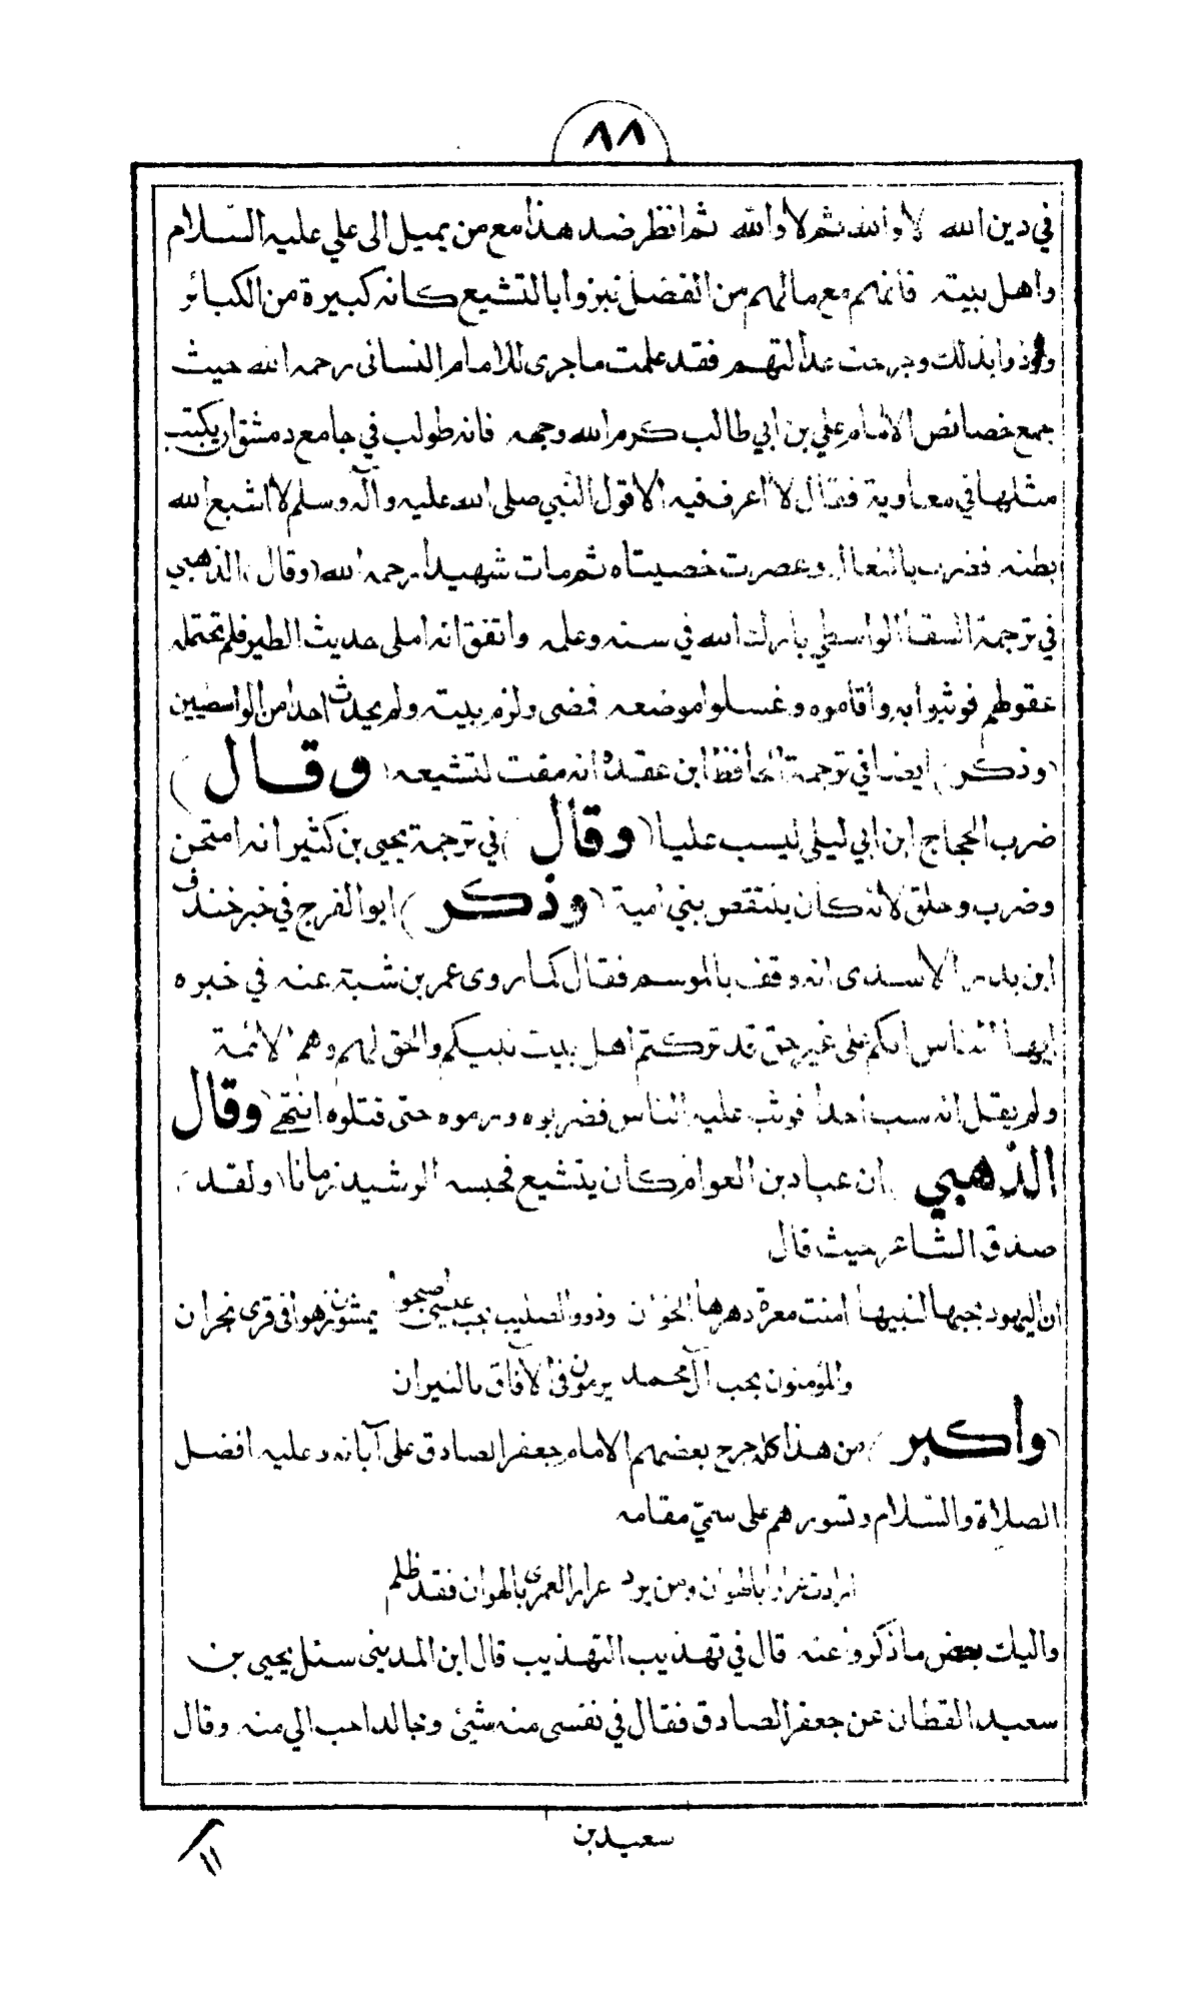 ٨٨
في دين الله لا والله ثم لا والله ثم انظر ضد هذا مع من يميل الى علي عليه السّلام
واهل بيته فانهم مع مالهم من الفضل نبزوا بالتشيع كانه كبيرة من الكبائر
واوذوا بذلك وجرحت عدالتهم فقد علمت ماجرى للامام النسائى رحمه الله حيث
جمع خصائص الامام علي بن ابي طالب كرم الله وجهه فانه طولب في جامع دمشق ان يكتب
مثلها في معاوية فقال لا اعرف فيه الا قول النبي صلى الله عليه وآله وسلم لا اشبع الله
بطنه فضرب بالنعال وعصرت خصيتاه ثم مات شهيدا رحمه الله (وقال) الذهبي
في ترجمة السقا الواسطي بارك الله في سنه وعلمه واتفق انه املى حديث الطير فلم تحتمله
عقولهم فوثبوا به واقاموه وغسلوا موضعه فمضى ولزم بيته ولم يحدث احدا من الواسطيين
(وذكر) ايضا في ترجمة الحافظ ابن عقدة انه مقت لتشيعه (وقال)
ضرب الحجاج ابن ابي ليلى ليسب عليا (وقال) في ترجمة يحيى بن كثير انه امتحن
وضرب وحلق لانه كان ينتقص بني امية (وذكر) ابو الفرج في خبر خندف
ابن بدر الاسدى انه وقف بالموسم فقال كما روى عمر بن شبة عنه في خبره
ايها الناس انكم على غير حق قد تركتم اهل بيت نبيكم والحق لهم وهم الائمة
ولم يقل انه سب احدا فوثب عليه الناس فضربوه ورموه حتى قتلوه انتهى (وقال
الذهبي) ان عباد بن العوام كان يتشيع فحبسه الرشيد زمانا (ولقد)
صدق الشاعر حيث قال
ان اليهود بحبها لنبيها امنت معرة دهرها الخوان وذوو الصليب بحب عيسى اصبحوا يمشون زهوا فى قرى نجران
والمؤمنون بحب آل محمد يرمون فى الآفاق بالنيران
(وأكبر) من هذا كله جرح بعضهم الامام جعفر الصادق على آبائه وعليه افضل
الصلاة والسّلام وتسورهم على سميّ مقامه
ارادت عرارا بالهوان ومن يرد عرارا لعمرى بالهوان فقد ظلم
واليك بعض ماذكروا عنه قال في تهذيب التهذيب قال ابن المدينى سئل يحيى بن
سعيد القطان عن جعفر الصادق فقال في نفسى منه شئ ومجالد احب الي منه وقال
سعيد بن
١١